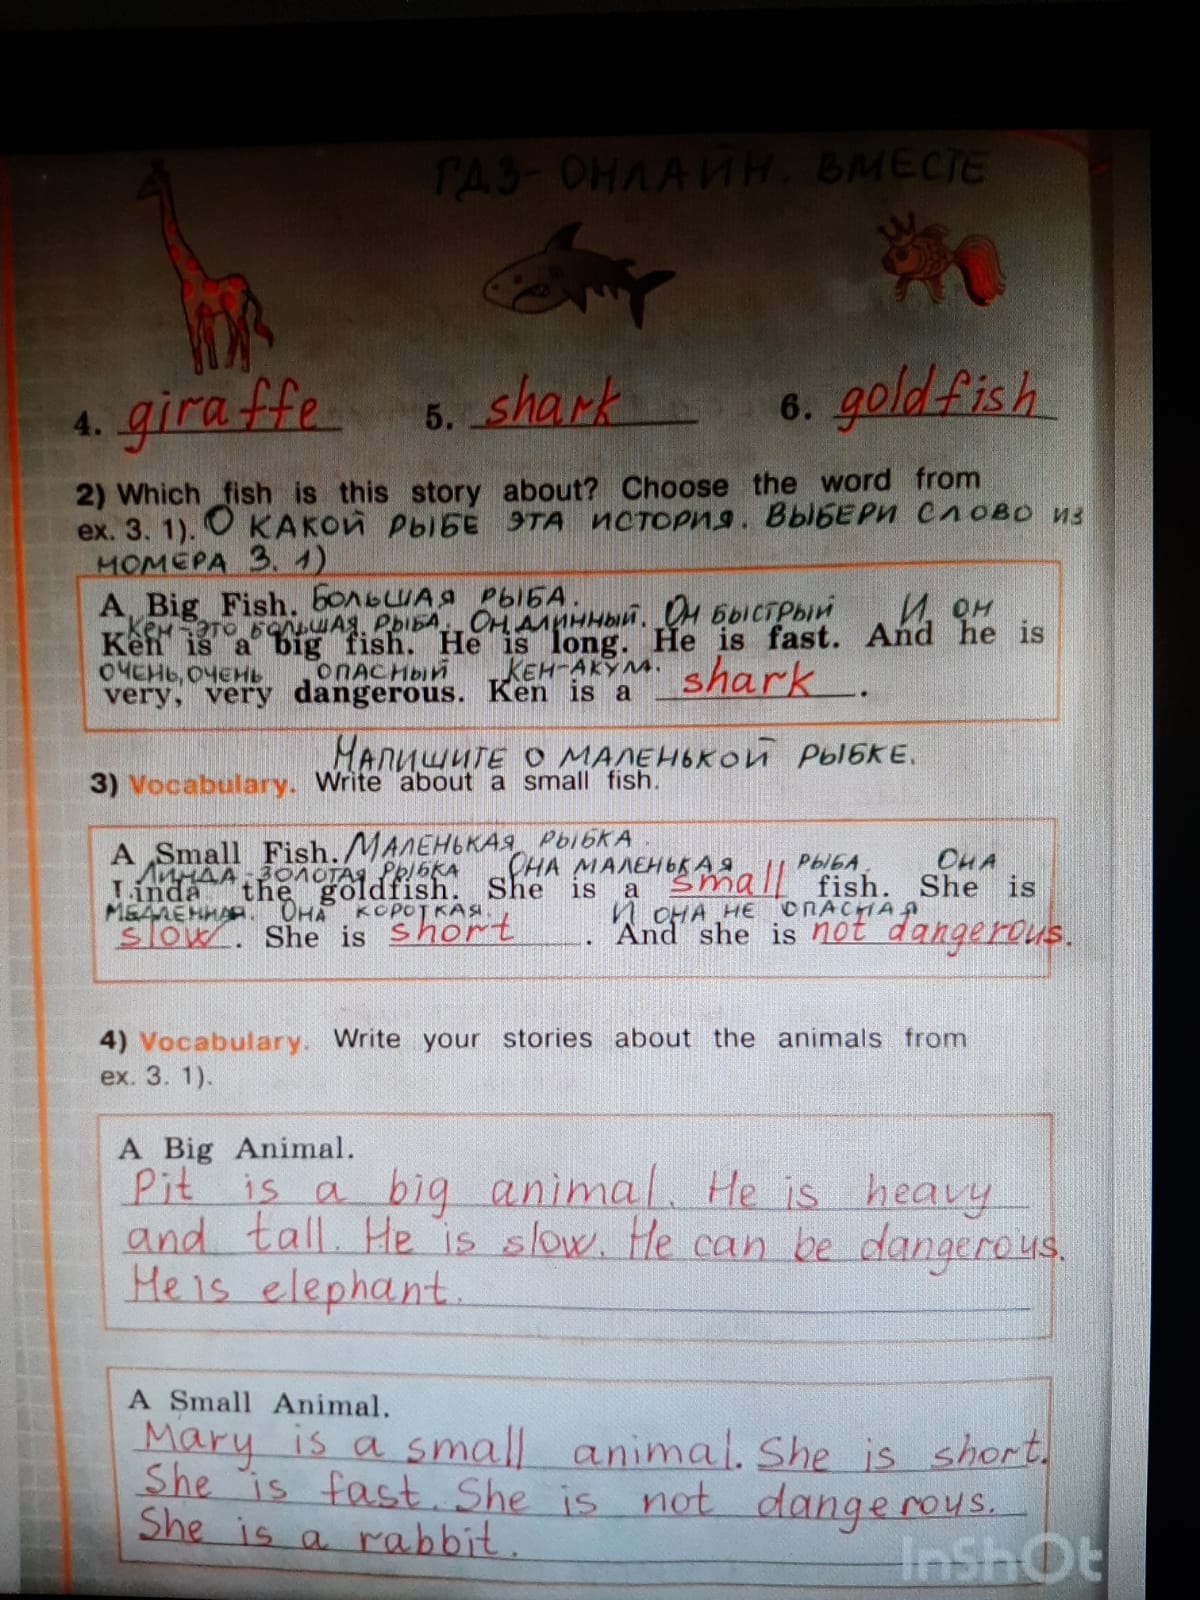 ГДЗ-ОНЛАЙН. ВМЕСТЕ
4. giraffe 5. shark 6. goldfish
2) Which fish is this story about? Choose the word from
ex. 3. 1). О КАКОЙ РЫБЕ ЭТА ИСТОРИЯ. ВЫБЕРИ СЛОВО ИЗ
НОМЕРА 3. 1)
A Big Fish. БОЛЬШАЯ РЫБА.
КЕН-ЭТО БОЛЬШАЯ РЫБА. ОН ДЛИННЫЙ. ОН БЫСТРЫЙ И ОН
Ken is a big fish. He is long. He is fast. And he is
ОЧЕНЬ, ОЧЕНЬ ОПАСНЫЙ КЕН-АКУЛА.
very, very dangerous. Ken is a shark.
НАПИШИТЕ О МАЛЕНЬКОЙ РЫБКЕ.
3) Vocabulary. Write about a small fish.
A Small Fish. МАЛЕНЬКАЯ РЫБКА.
ЛИНДА-ЗОЛОТАЯ РЫБКА ОНА МАЛЕНЬКАЯ РЫБА. ОНА
Linda the goldfish. She is a small fish. She is
МЕДЛЕННАЯ. ОНА КОРОТКАЯ. И ОНА НЕ ОПАСНАЯ
slow. She is short. And she is not dangerous.
4) Vocabulary. Write your stories about the animals from
ex. 3. 1).
A Big Animal.
Pit is a big animal. He is heavy
and tall. He is slow. He can be dangerous.
He is elephant.
A Small Animal.
Mary is a small animal. She is short.
She is fast. She is not dangerous.
She is a rabbit.
InShOt